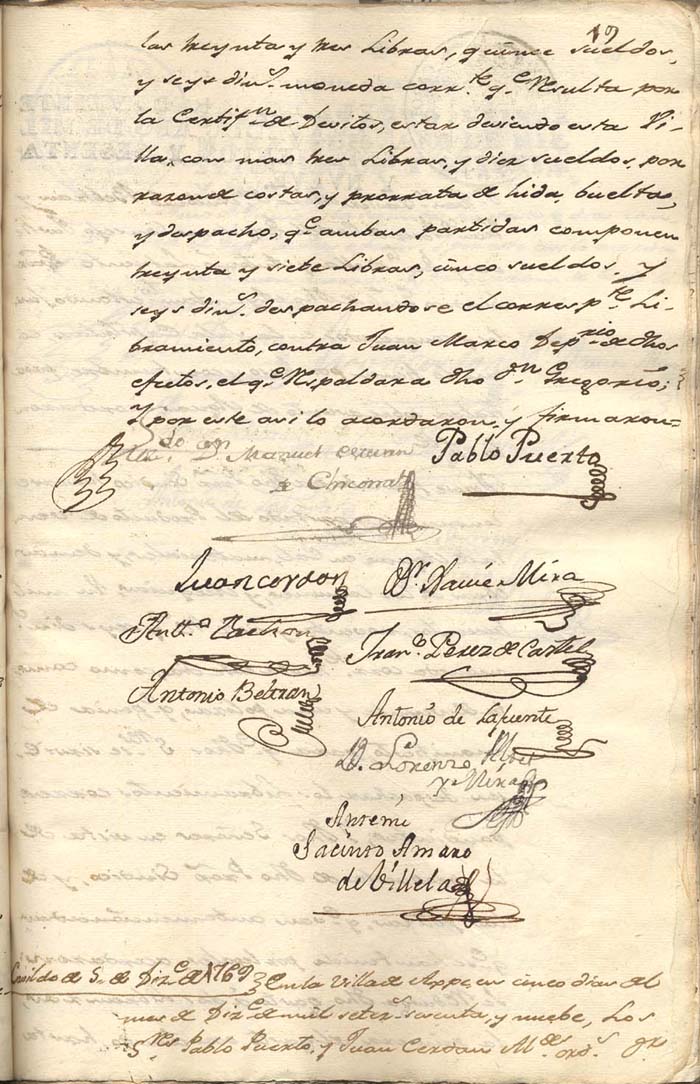 19
las treynta y tres Libras, quinse sueldos,
y seys din.s moneda corr.te q.e Resulta por
la Certif.n de Devitos, estar deviendo esta Vi-
lla, con mas tres Libras, y diez sueldos, por
razon de costas, y prorrata de hida, buelta,
y despacho, q.e ambas partidas componen
treynta y siete Libras, cinco sueldos, y
seys din.s despachandose el corresp.te Li-
bramiento, contra Juan Marco Dep.rio de dhos
efetos, el q.e Respaldara dho D.n Gregorio;
Y por este asi lo acordaron, y firmaron=
D.n Manuel
Pablo Puerto
de Chicona
Juan cerdan
D.r Xavie Mira
Ant.o
Fran.co Perez de Castel
Antonio Beltran
Antonio de Lafuente
D. Lorenzo
y Mira
Antemi
Jacinto Amaro
de Villela
Cavildo de 5. de Diz.e de 1769
En la Villa de Aspe, en cinco dias del
mes de Diz.e de mil setez.s sesenta, y nuebe, Los
S.res Pablo Puerto, y Juan Cerdan Al.des ord.s